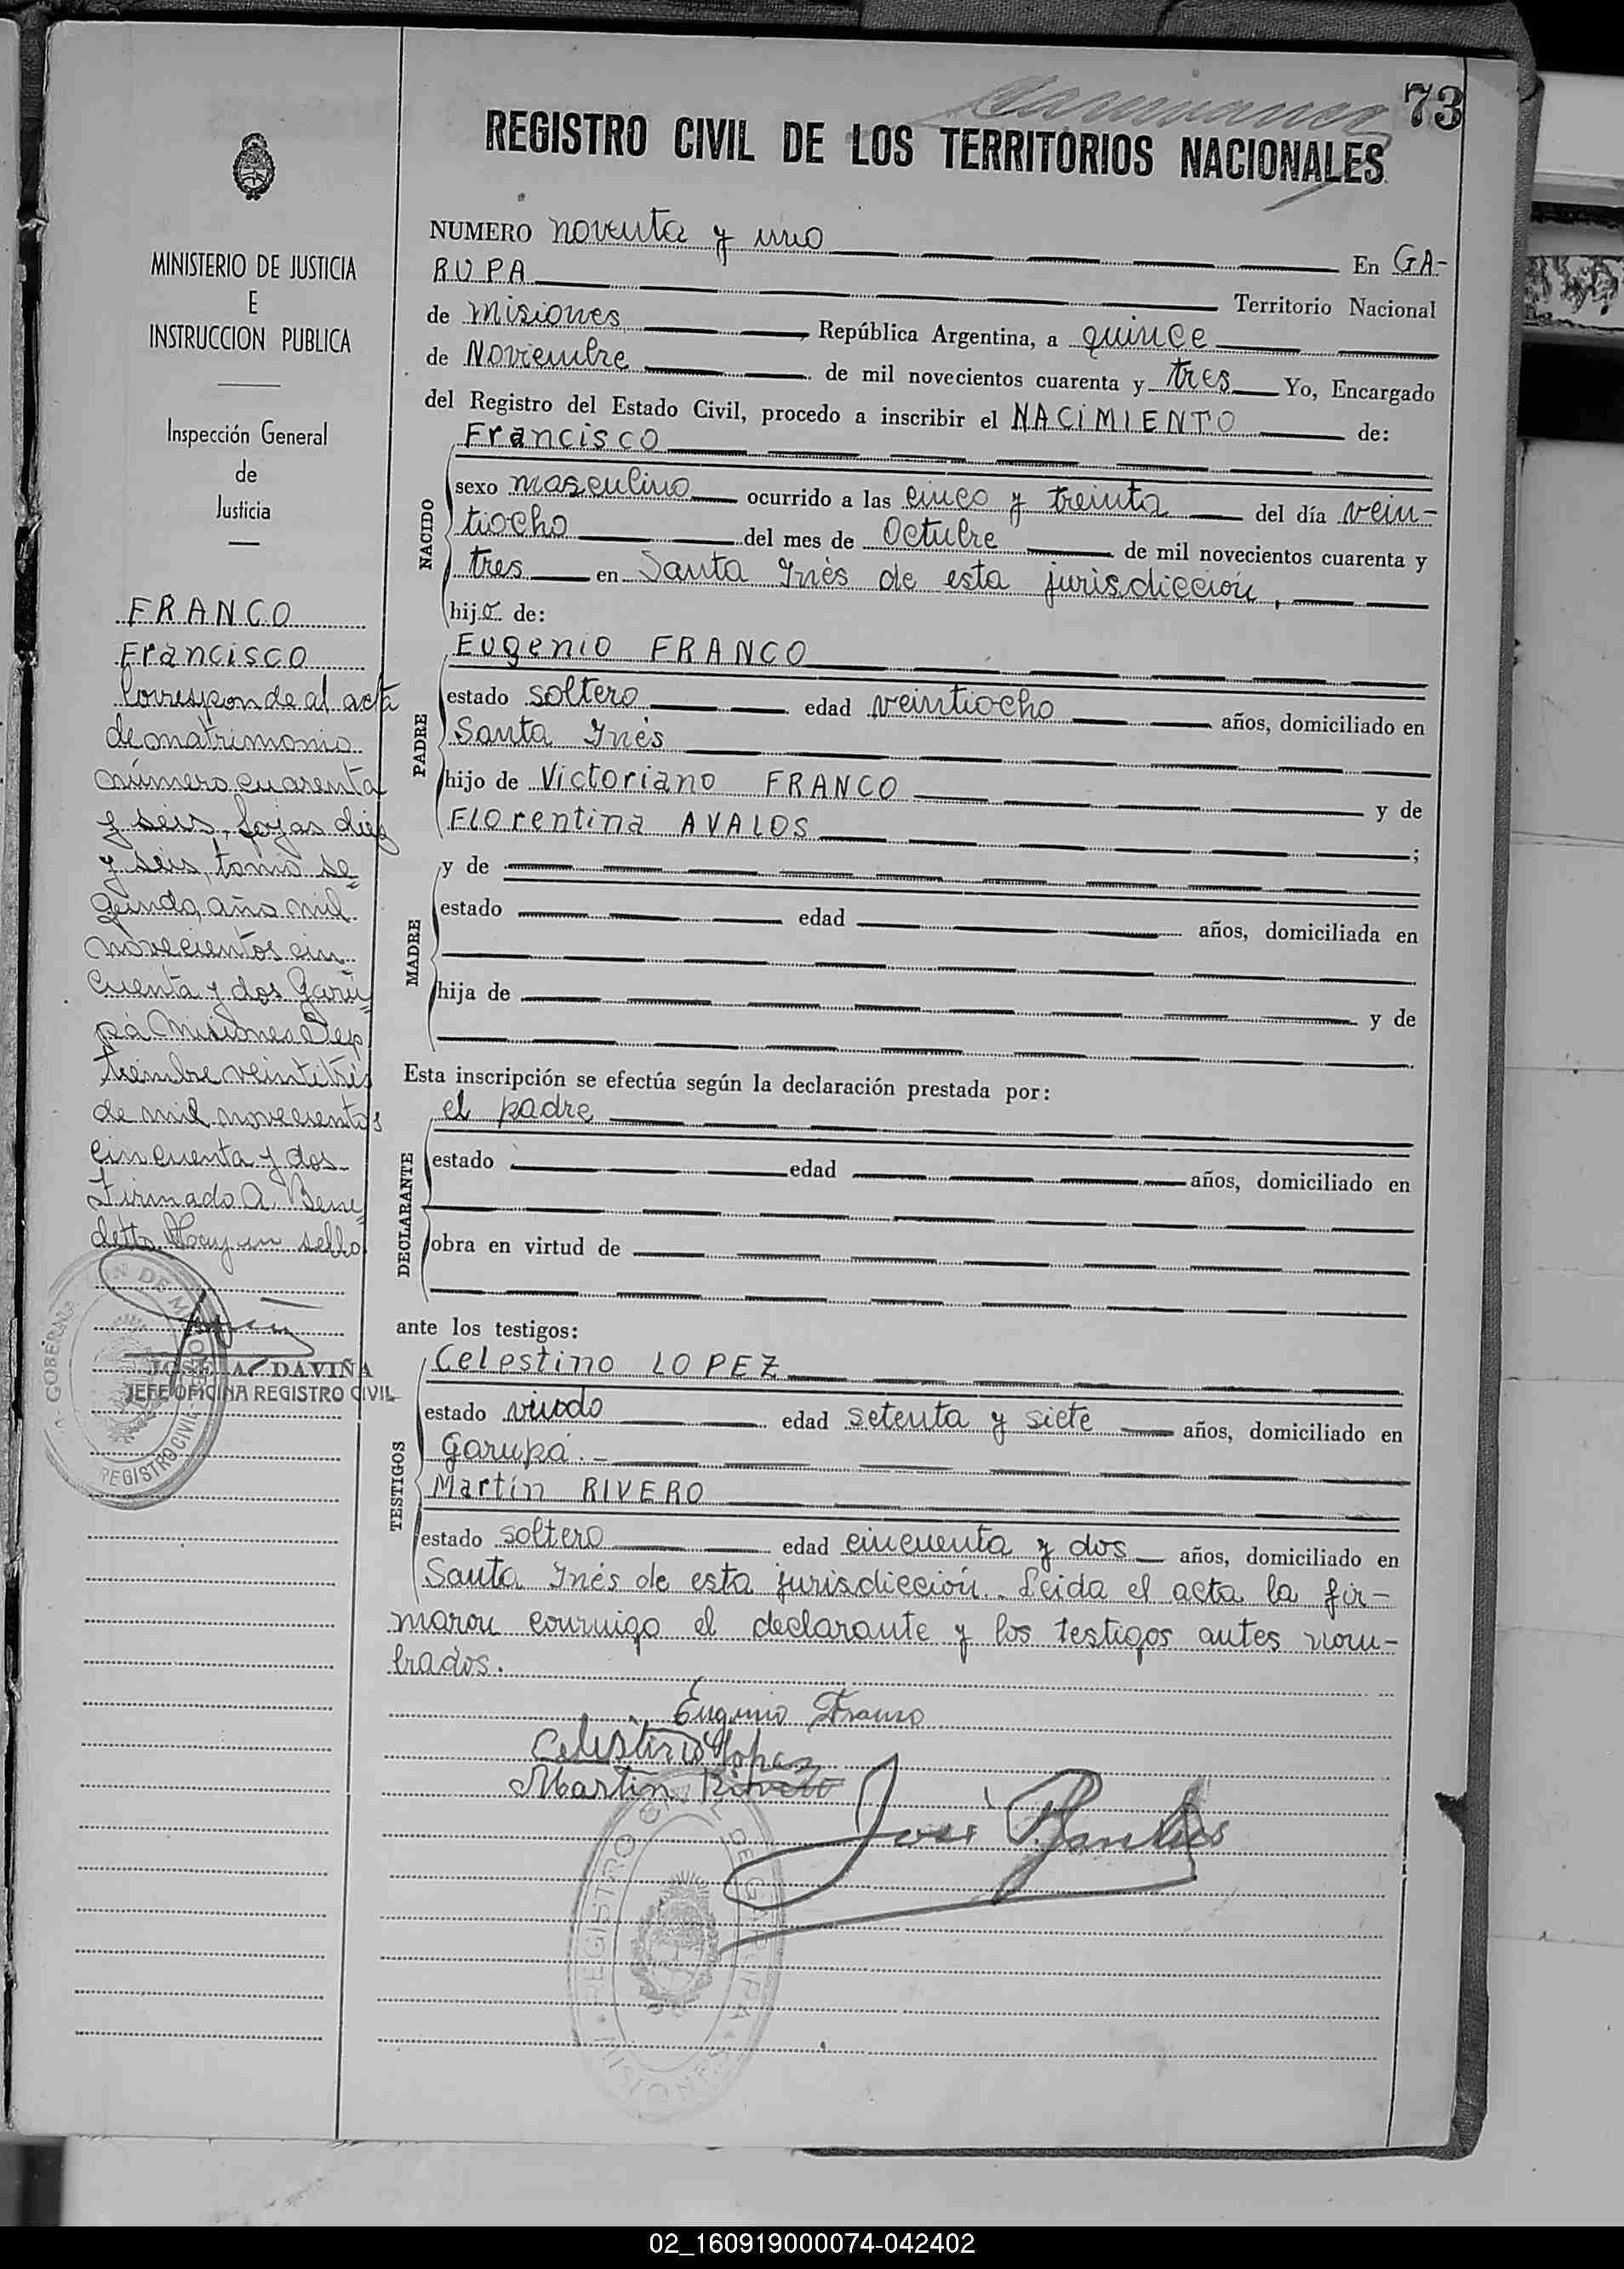 73
REGISTRO CIVIL DE LOS TERRITORIOS NACIONALES
MINISTERIO DE JUSTICIA
E
INSTRUCCION PUBLICA
Inspección General
de
Justicia
FRANCO
Francisco
Corresponde al acta
de matrimonio
número cuarenta
y seis, fojas diez
y seis, tomo se=
gundo, año mil
novecientos cin
cuenta y dos Garu=
pá Misiones Sep
tiembre veintitrés
de mil novecientos
cincuenta y dos
Firmado A. Bene=
detto Hay un sello
GOBERNA
N DE MISIONES
REGISTRO CIVIL
JOSE A. DAVIÑA
JEFE OFICINA REGISTRO CIVIL
NUMERO noventa y uno En GA-
RUPA Territorio Nacional
de Misiones, República Argentina, a quince
de Noviembre de mil novecientos cuarenta y tres Yo, Encargado
del Registro del Estado Civil, procedo a inscribir el NACIMIENTO de:
NACIDO
Francisco
sexo masculino ocurrido a las cinco y treinta del día vein-
tiocho del mes de Octubre de mil novecientos cuarenta y
tres en Santa Inés de esta jurisdicción,
hijo de:
PADRE
Eugenio FRANCO
estado soltero edad veintiocho años, domiciliado en
Santa Inés
hijo de Victoriano FRANCO y de
Florentina AVALOS ;
MADRE
y de
estado edad años, domiciliada en
hija de y de
Esta inscripción se efectúa según la declaración prestada por:
el padre
DECLARANTE
estado edad años, domiciliado en
obra en virtud de
ante los testigos:
TESTIGOS
Celestino LOPEZ
estado viudo edad setenta y siete años, domiciliado en
Garupá.-
Martín RIVERO
estado soltero edad cincuenta y dos años, domiciliado en
Santa Inés de esta jurisdicción. Leida el acta la fir-
maron conmigo el declarante y los testigos antes nom-
brados.
Eugenio Franco
Celestino Lopez
Martin Rivero
José
REGISTRO CIVIL DE GARUPA
MISIONES
02_160919000074-042402